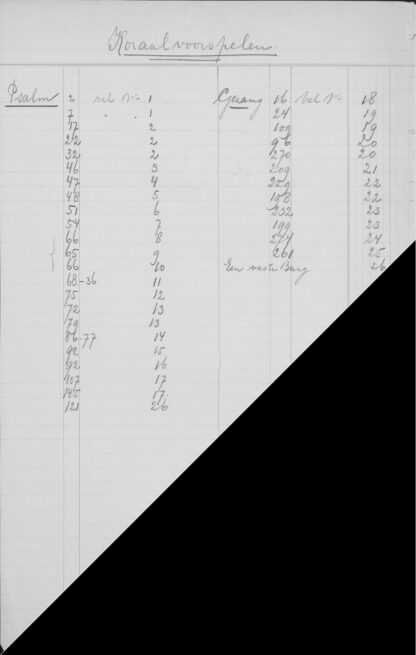 Koraalvoorspelen.
Psalm 2 vel No 1 Gezang 16 Vel No 18
7 " " 1 24 19
17 2 109 19
22 2 96 20
32 2 270 20
46 3 209 21
47 4 22
48 5 198 22
51 6 232 23
54 7 199 23
66 8 274 24
65 9 261 25
66 10 Een vaste Burg 26
68-36 11
75 12
72 13
79 13
86-77 14
92 15
92 16
107 17
145 17
121 26